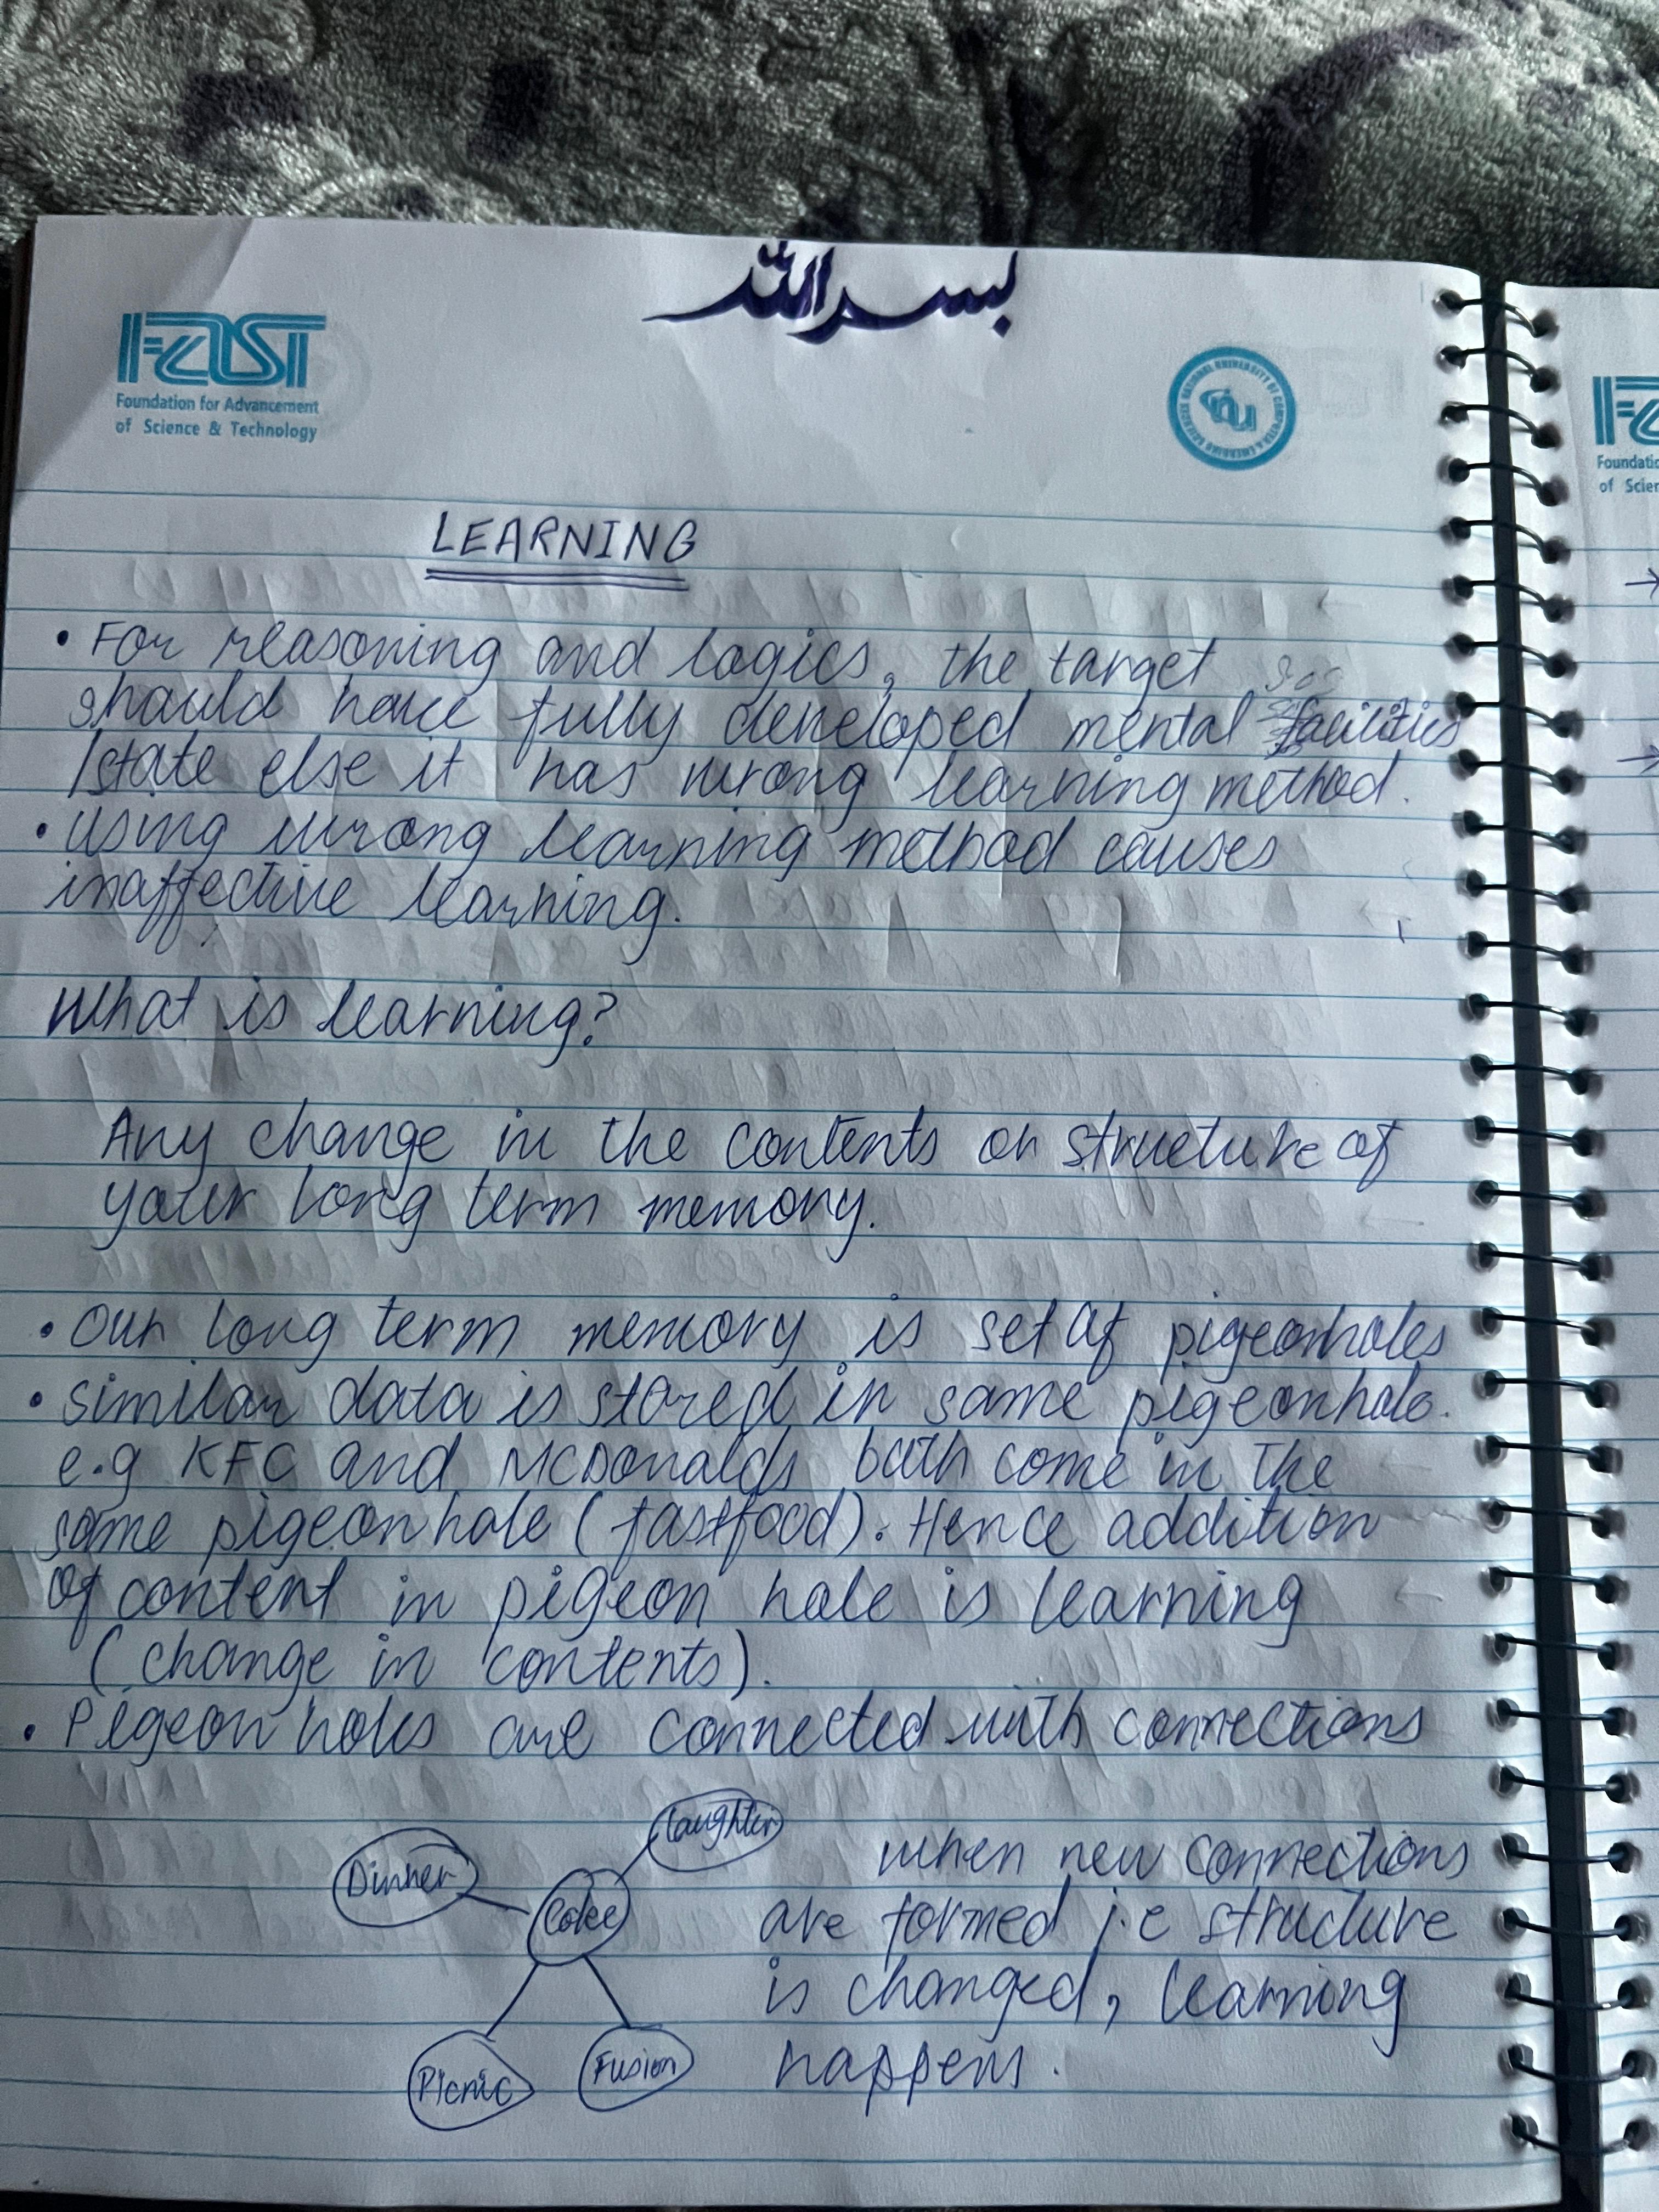 بسم الله
FAST
Foundation for Advancement
of Science & Technology
NATIONAL UNIVERSITY OF COMPUTER & EMERGING SCIENCES
nu
LEARNING
• For reasoning and logics, the target
should have fully developed mental facilities
/state else it has wrong learning method.
• using wrong learning method causes
inaffective learning.
What is learning?
Any change in the contents or structure of
your long term memory.
• Our long term memory is set of pigeonholes
• similar data is stored in same pigeonhole.
e.g KFC and McDonalds both come in the
same pigeonhole (fastfood). Hence addition
of content in pigeon hole is learning
(change in contents).
• Pigeon holes are connected with connections
Laughter
Dinner
Coke
Picnic
Fusion
when new connections
are formed i.e structure
is changed, learning
happens.
Foundatio
of Scien
→
→